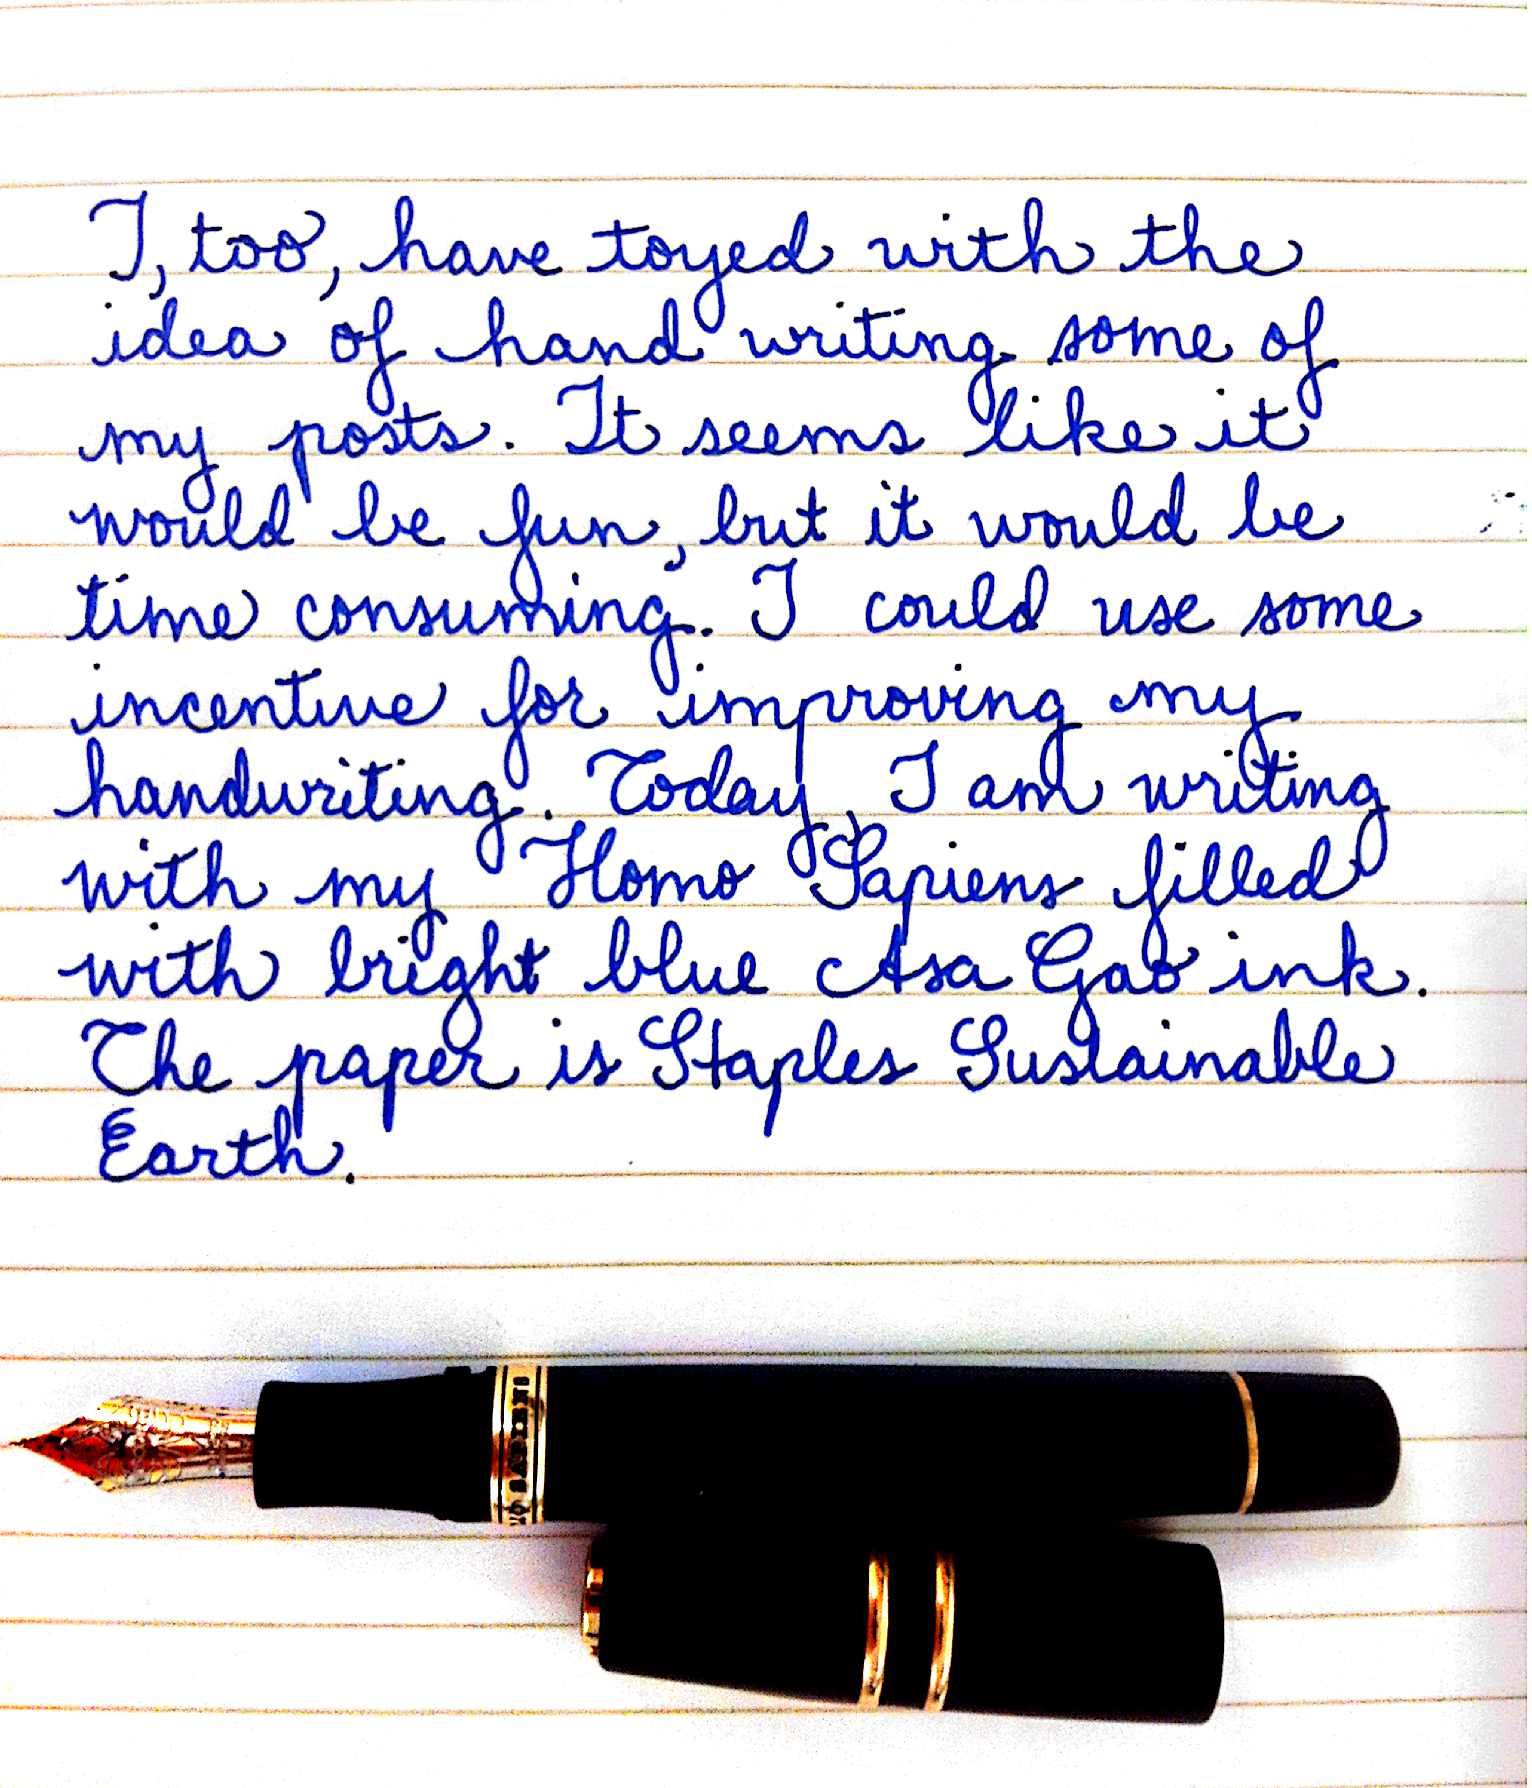 I, too, have toyed with the
idea of hand writing some of
my posts. It seems like it
would be fun, but it would be
time consuming. I could use some
incentive for improving my
handwriting. Today, I am writing
with my Homo Sapiens filled
with bright blue Asa Gao ink.
The paper is Staples Sustainable
Earth.
SAPIENS